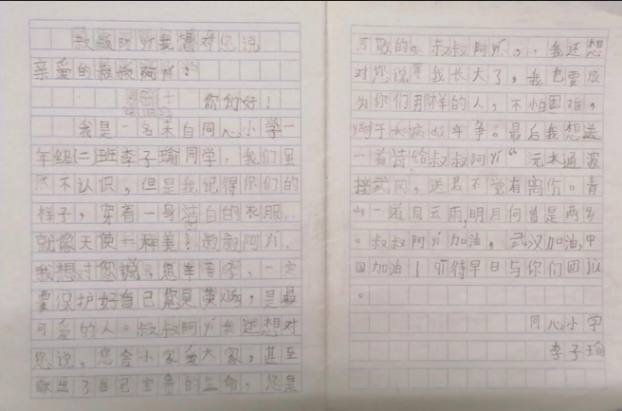 叔叔阿姨我想对您说
亲爱的叔叔阿姨：
你们好！
我是一名来自同心小学一
年级(二)班李子瑜同学，我们虽
然不认识，但是我记得你们的
样子，穿着一身洁白的衣服，
就像天使一样美！叔叔阿yí，
我想对您说：您辛苦了，一定
要保护好自己您是英雄，是最
可爱的人。叔叔阿yí我还想对
您说，您舍小家为大家，甚至
献出了自己宝贵的生命，您是
可敬的。叔叔阿yí，我还想
对您说等我长大了，我也要成
为你们用样的人，不怕困难，
勇于大病做斗争。最后我想送
一首诗给叔叔阿yí“沅水通波
接武冈，送君不觉有离伤。青
山一道同云雨，明月何曾是两乡
。叔叔阿yí加油，武汉加油，中
国加油！qī待早日与你们团以
。
同心小学
李子瑜